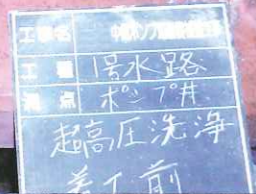 工事名
工種 1号水路
測点 ポンプ井
超高圧洗浄
着工前